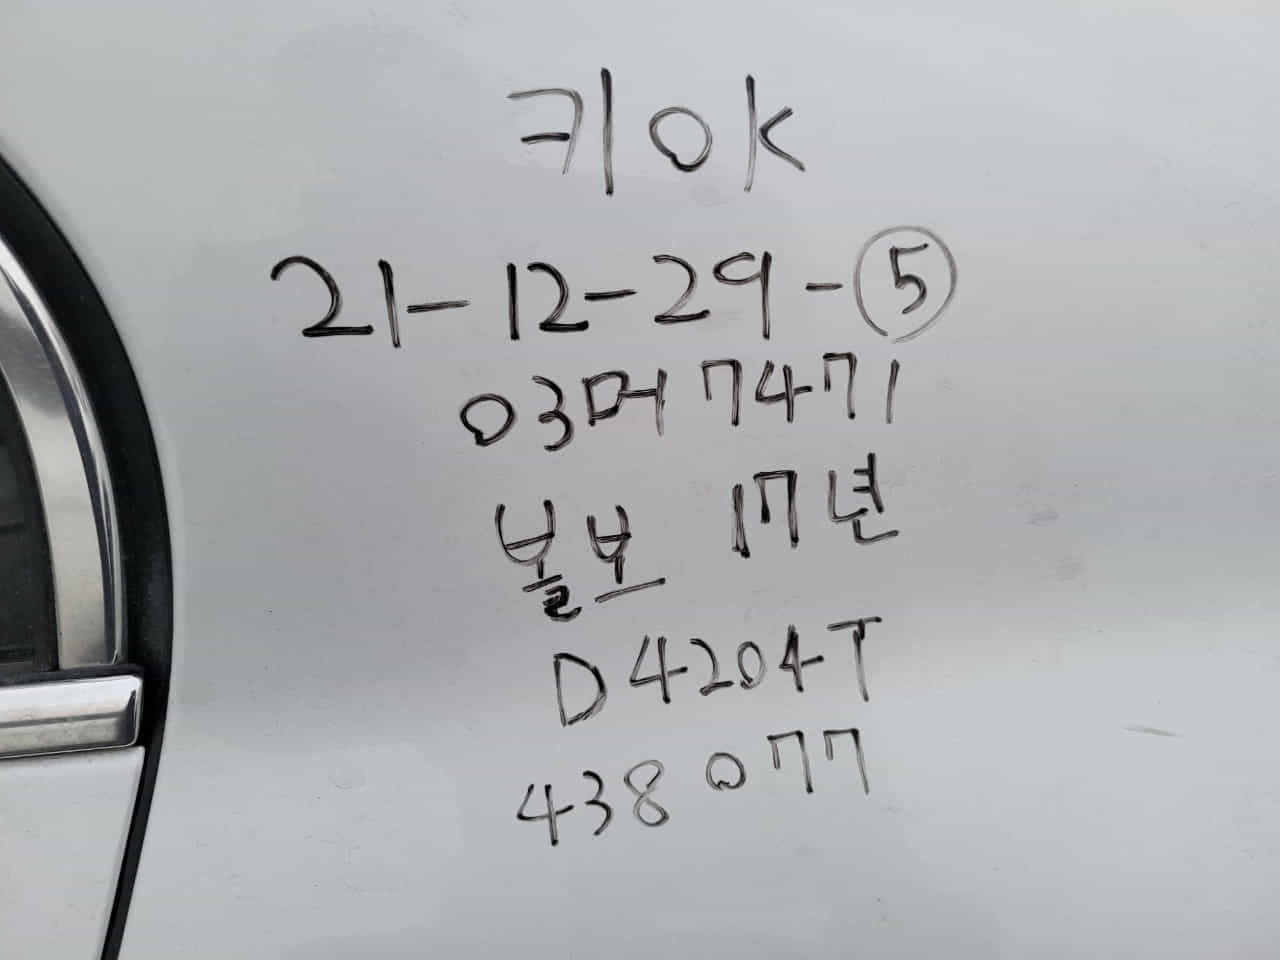 키OK
21-12-29-⑤
03머7471
볼보 17년
D4204T
438077